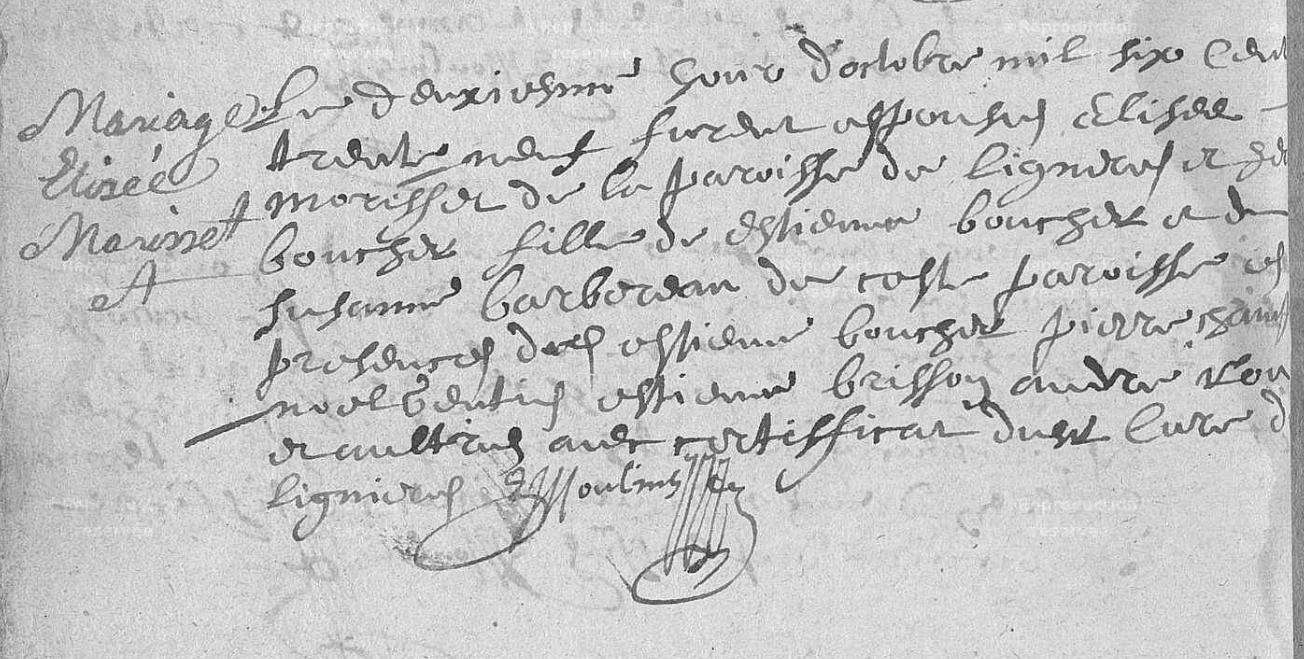 Mariage
Elisée
Morisset
Le deuxiesme Jour d'octobre mil six Cent
trente neuf furent espousés Elisee
morisset de la paroisse de lignieres et
boucher fille de estienne boucher et de
susanne barbereau de ceste paroisse es
presences de estienne boucher pierre
noel estienne brisson andre
et aultres avec certifficat du Cure d
lignieres